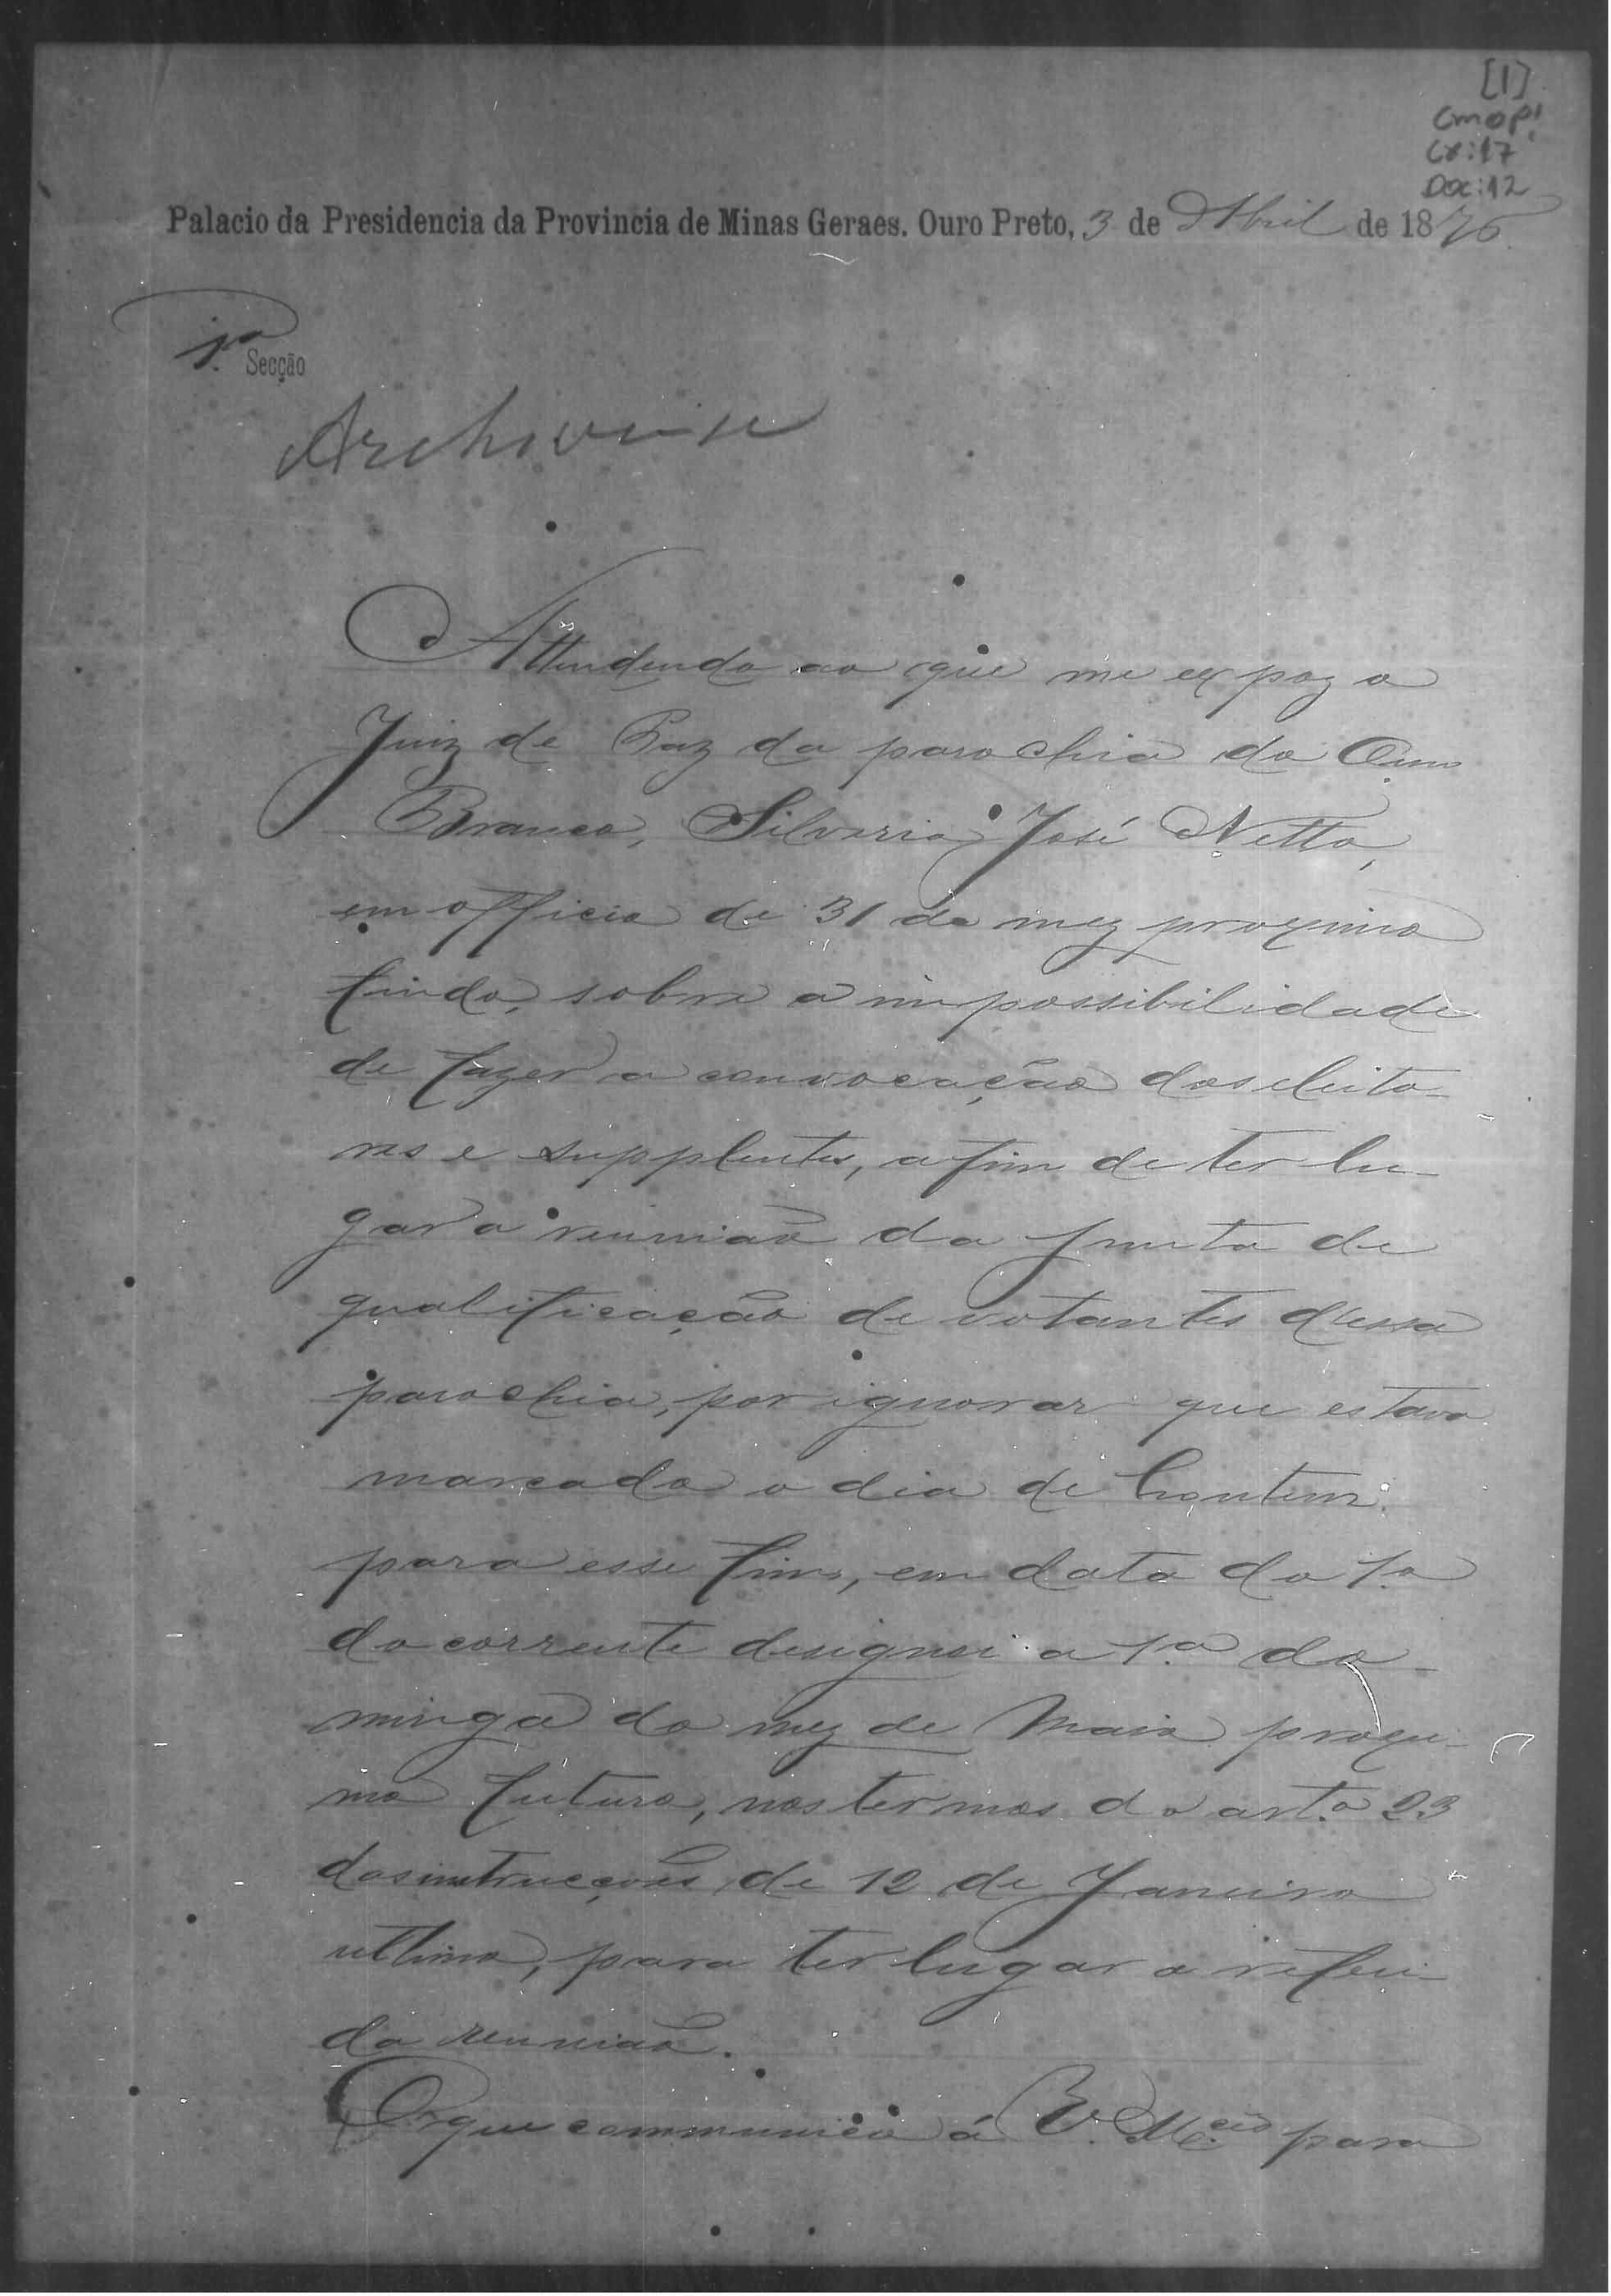 [1]
CMOP!
Cx:17
Doc:12
Palacio da Presidencia da Provincia de Minas Geraes. Ouro Preto, 3 de Abril de 1876.
1ª Secção
Archive-se
Attendendo ao que me expoz o
Juiz de Paz da parochia do Ouro
Branco, Silverio José Netto,
em officio de 31 do mez proximo
findo, sobre a impossibilidade
de fazer a convocação dos eleito-
res e supplentes, a fim de ter lu-
gar a reunião da junta de
qualificação de votantes d'essa
parochia, por ignorar que estava
marcado o dia de hontem
para esse fim, em data do 1º
do corrente designei a 1.ª do-
minga do mez de Maio proxi-
mo futuro, nos termos do art.º 23
das instrucções de 12 de Janeiro
ultimo, para ter lugar a referi-
da reunião.
O que communico á V. M.ces para